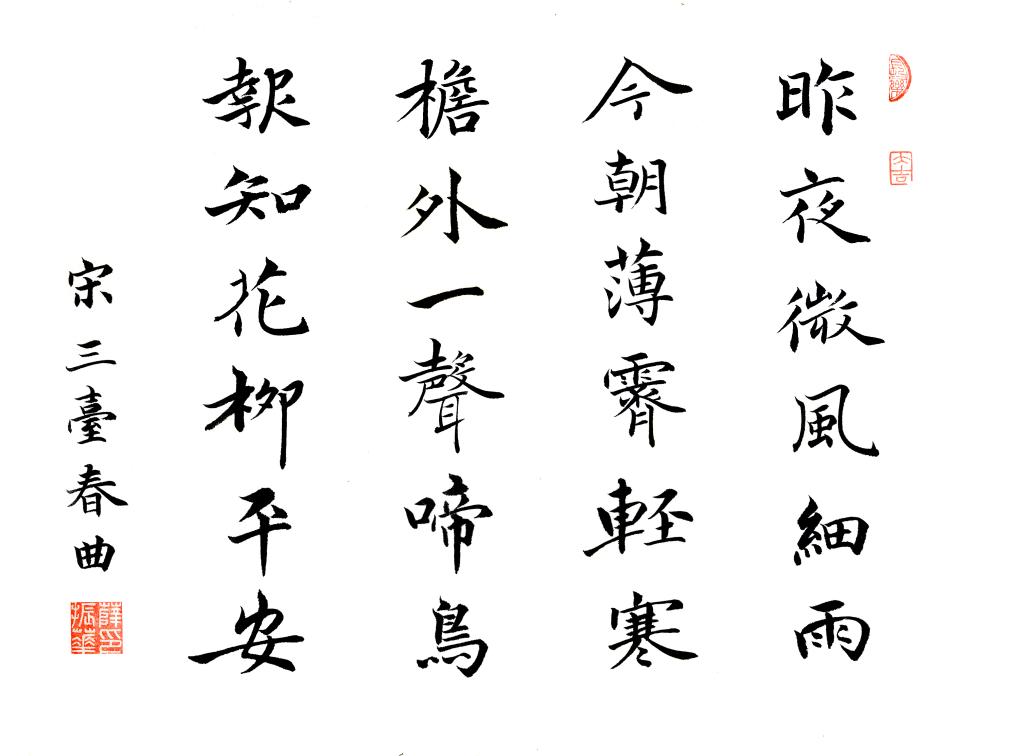 長樂
大吉
昨夜微風細雨
今朝薄霽輕寒
檐外一聲啼鳥
報知花柳平安
宋三臺春曲
薛印振華